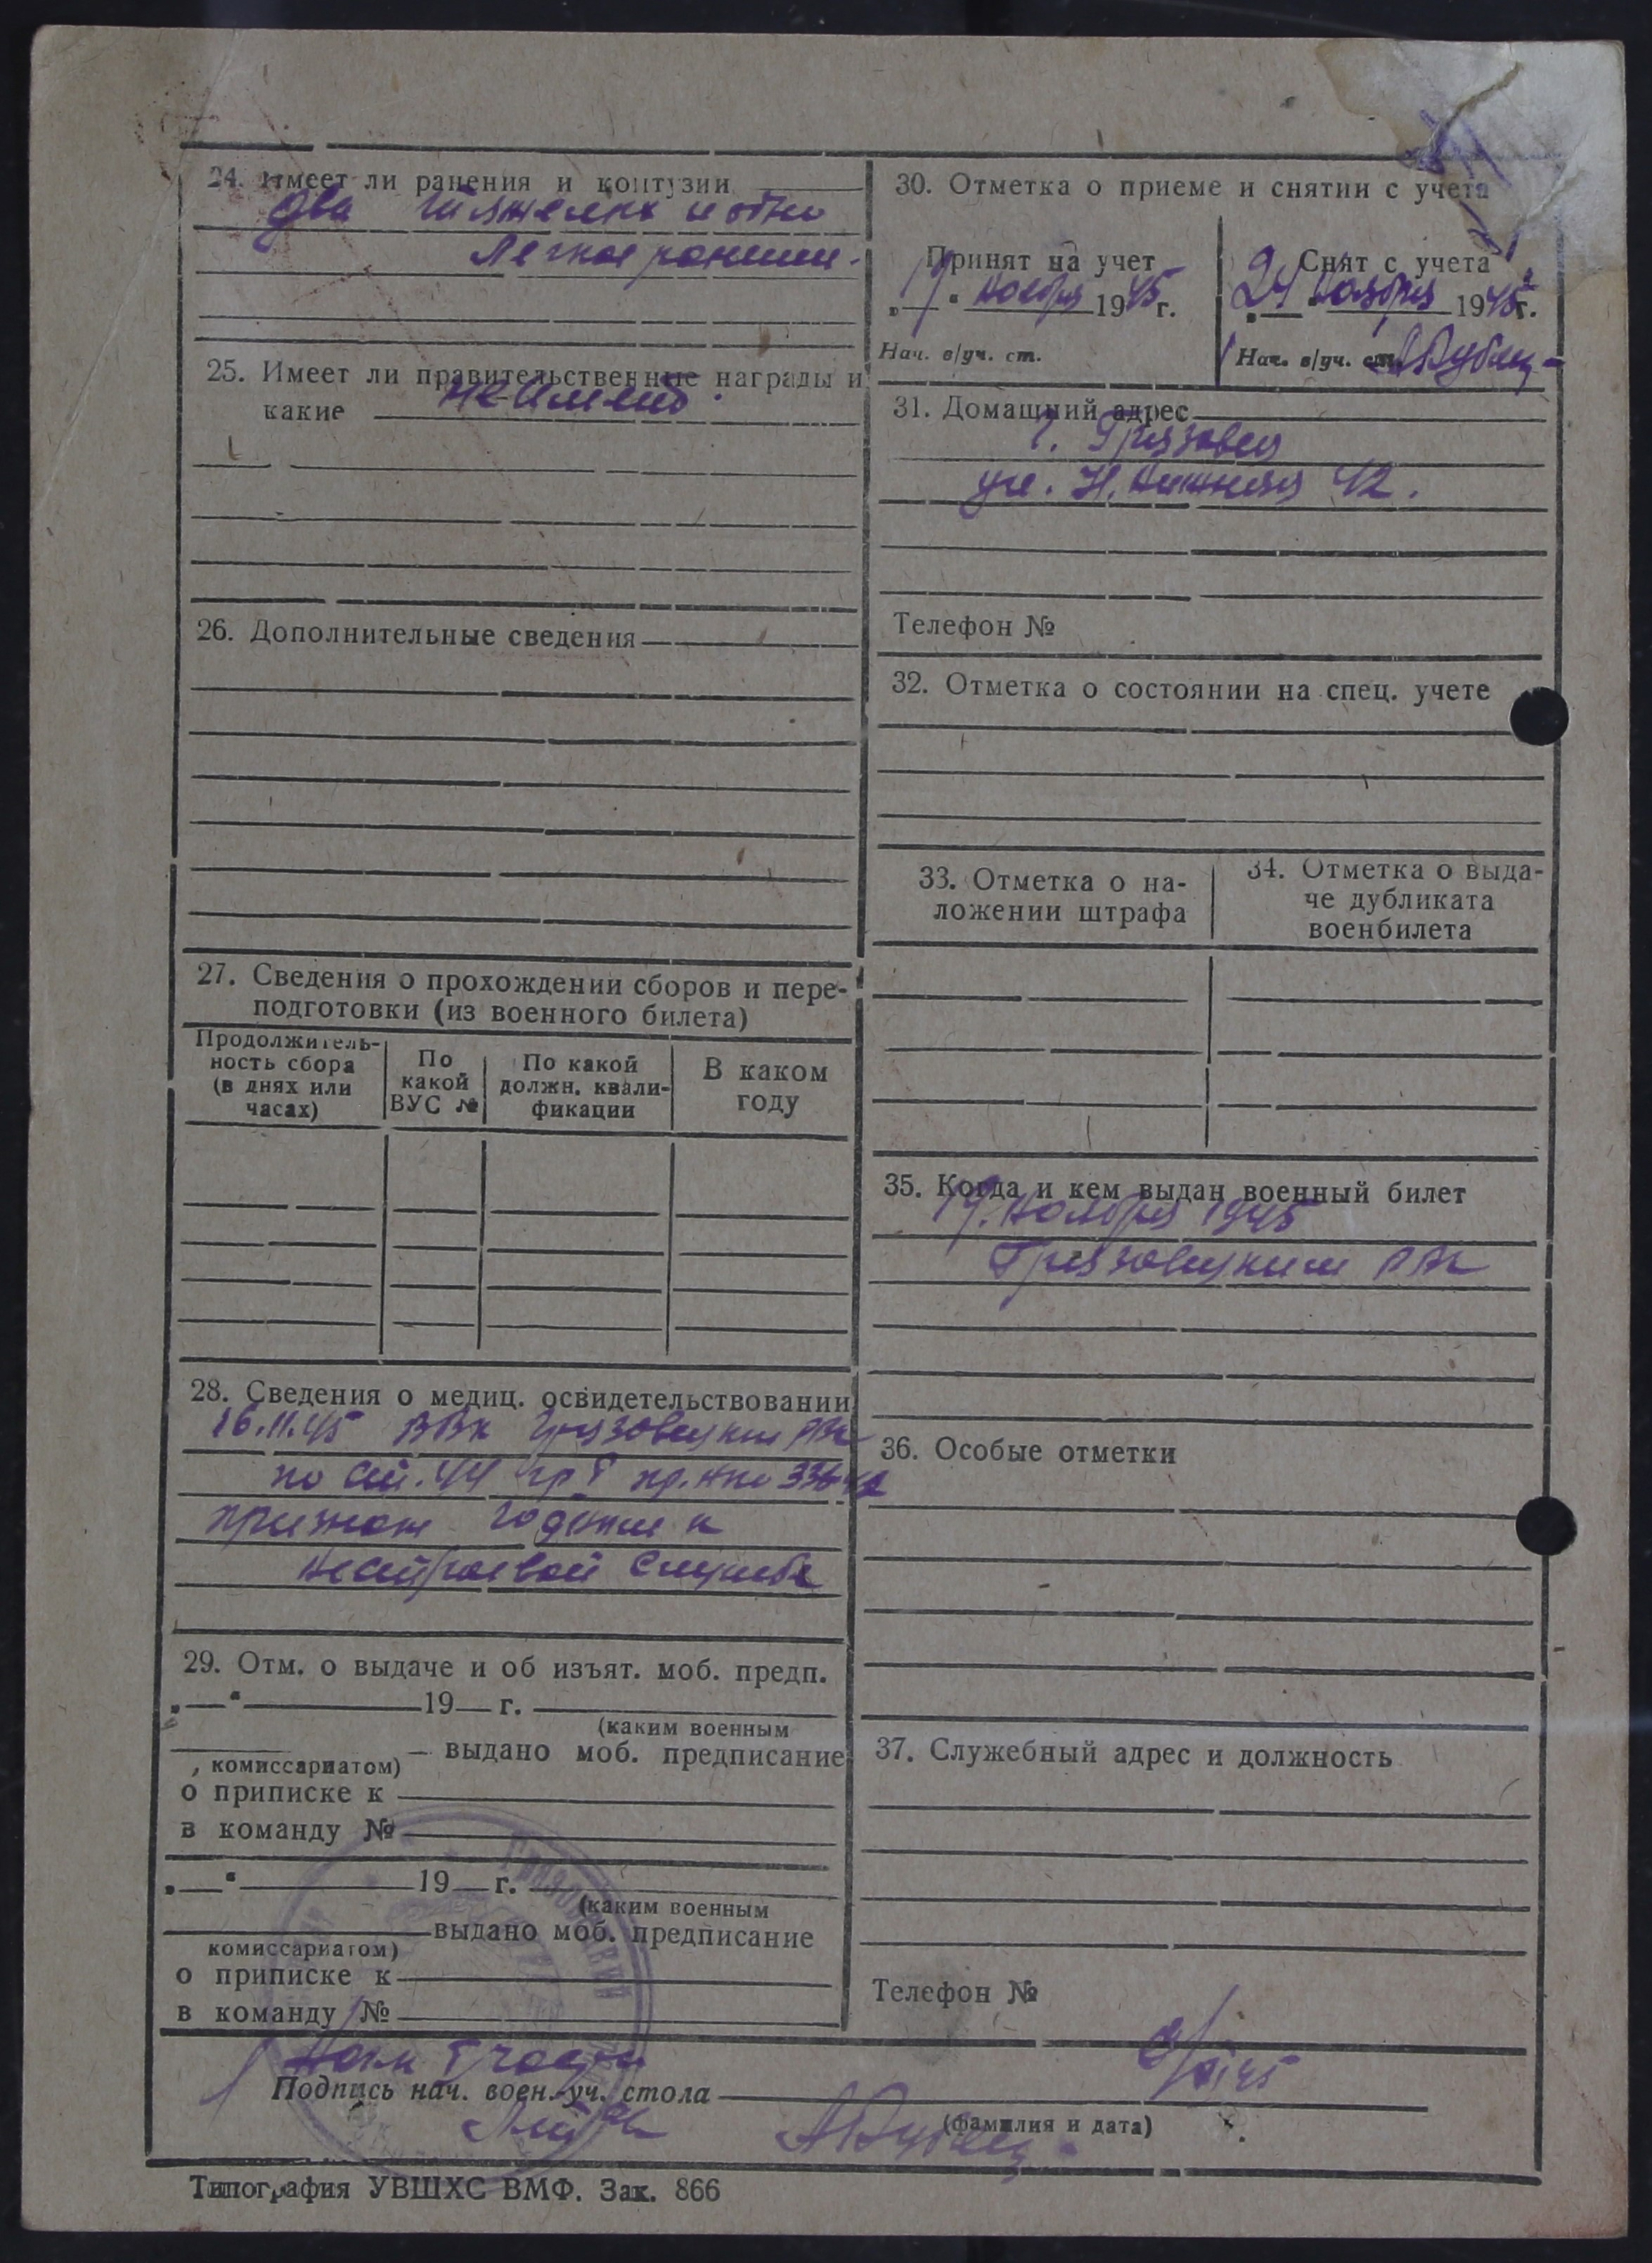 24. Имеет ли ранения и контузии
два тяжелых и одно
легкое ранение.
25. Имеет ли правительственные награды и
какие не имеет.
26. Дополнительные сведения
27. Сведения о прохождении сборов и пере-
подготовки (из военного билета)
Продолжитель-
ность сбора
(в днях или
часах)
По
какой
ВУС №
По какой
должн. квали-
фикации
В каком
году
28. Сведения о медиц. освидетельствовании
16.11.45 ВВК Грязовецким РВК
по ст. 44 гр I пр. НКО 336-42
признан годным к
нестроевой службе
29. Отм. о выдаче и об изъят. моб. предп.
„—“ 19— г.
(каким военным
комиссариатом) — выдано моб. предписание
о приписке к
в команду №
„—“ 19— г.
(каким военным
выдано моб. предписание
комиссариатом)
о приписке к
в команду №
30. Отметка о приеме и снятии с учета
Принят на учет
19 ноября 1945 г.
Нач. в/уч. ст.
Снят с учета
24 ноября 1945 г.
Нач. в/уч. ст.
31. Домашний адрес
г. Грязовец
ул. Н. 42.
Телефон №
32. Отметка о состоянии на спец. учете
33. Отметка о на-
ложении штрафа
34. Отметка о выда-
че дубликата
военбилета
35. Когда и кем выдан военный билет
19. ноября 1945
Грязовецким РВК
36. Особые отметки
37. Служебный адрес и должность
Телефон №
Нач I части
Подпись нач. воен.-уч. стола
(фамилия и дата)
Грязовецкий
Типография УВШХС ВМФ. Зак. 866